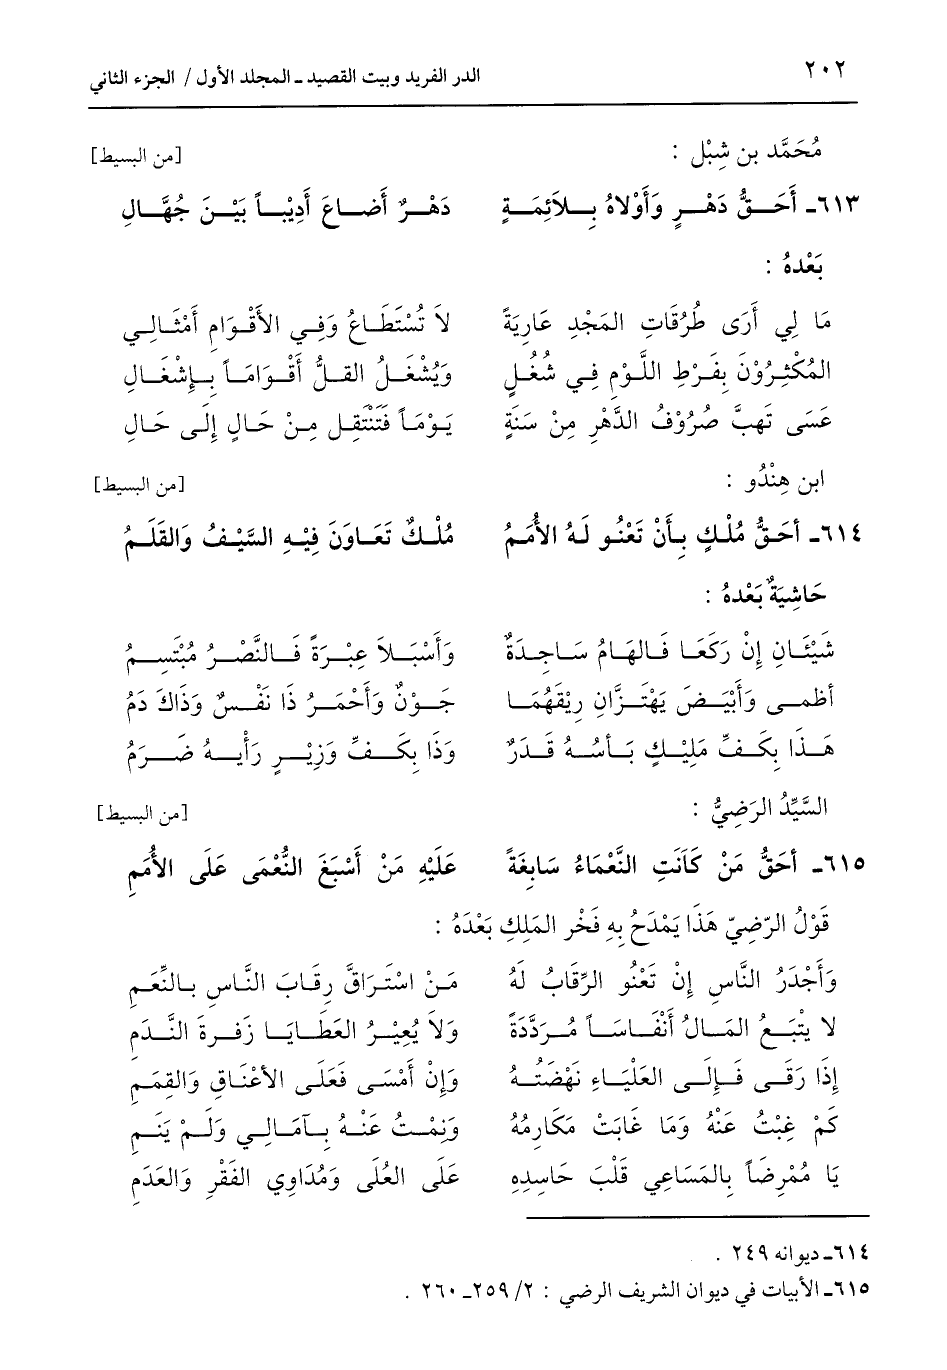 ٢٠٢ الدر الفريد وبيت القصيد ـ المجلد الأول / الجزء الثاني
مُحَمَّد بن شِبْل : [من البسيط]
٦١٣ـ أَحَقُّ دَهْرٍ وَأَوْلَاهُ بِلاَئِمَةٍ دَهْرٌ أَضَاعَ أَدِيْبَاً بَيْنَ جُهَّالِ
بَعْدهُ :
مَا لِي أَرَى طُرُقَاتِ المَجْدِ عَارِيَةً لاَ تُسْتَطَاعُ وَفِي الأَقْوَامِ أَمْثَالِي
المُكْثِرُوْنَ بِفَرْطِ اللَّوْمِ فِي شُغُلٍ وَيُشْغَلُ القلُّ أَقْوَامَاً بِإِشْغَالِ
عَسَى تَهبَّ صُرُوْفُ الدَّهْرِ مِنْ سَنَةٍ يَوْمَاً فَتَنْتَقِل مِنْ حَالٍ إِلَى حَالِ
ابن هِنْدُو : [من البسيط]
٦١٤ـ أَحَقُّ مُلْكٍ بِأَنْ تَعْنُو لَهُ الأُمَمُ مُلْكٌ تَعَاوَنَ فِيْهِ السَّيْفُ وَالقَلَمُ
حَاشِيَةٌ بَعْدهُ :
شَيْئَانِ إِنْ رَكَعَا فَالهَامُ سَاجِدَةٌ وَأَسْبَلاَ عِبْرَةً فَالنَّصْرُ مُبْتَسِمُ
أظمى وَأَبْيَضَ يَهْتَزَّانِ رِيْقَهُمَا جَوْنٌ وَأَحْمَرُ ذَا نَفْسٌ وَذَاكَ دَمُ
هَذَا بِكَفِّ مَلِيْكٍ بَأسُهُ قَدَرٌ وَذَا بِكَفِّ وَزِيْرٍ رَأيهُ ضَرَمُ
السَّيِّدُ الرَضِيُّ : [من البسيط]
٦١٥ـ أَحَقُّ مَنْ كَانَتِ النَّعْمَاءُ سَابِغَةً عَلَيْهِ مَنْ أَسْبَغَ النُّعْمَى عَلَى الأُمَمِ
قَوْلُ الرّضِيّ هَذَا يَمْدَحُ بِهِ فَخْر المَلِكِ بَعْدَهُ :
وَأَجْدَرُ النَّاسِ إِنْ تَعْنُو الرِّقَابُ لَهُ مَنْ اسْتَرَاقَّ رِقَابَ النَّاسِ بِالنِّعَمِ
لا يتْبَعُ المَالُ أَنْفَاسَاً مُرَدَّدَةً وَلاَ يُعِيْرُ العَطَايَا زَفرةَ النَّدَمِ
إِذَا رَقَى فَإِلَى العَلْيَاءِ نَهْضَتُهُ وَإِنْ أَمْسَى فَعَلَى الأَعْنَاقِ وَالقِمَمِ
كَمْ غِبْتُ عَنْهُ وَمَا غَابَتْ مَكَارِمُهُ وَنِمْتُ عَنْهُ بِآمَالِي وَلَمْ يَنَمِ
يَا مُمْرِضَاً بِالمَسَاعِي قَلْبَ حَاسِدِهِ عَلَى العُلَى وَمُدَاوِي الفَقْرِ وَالعَدَمِ
٦١٤ـ ديوانه ٢٤٩ .
٦١٥ـ الأبيات في ديوان الشريف الرضي : ٢/ ٢٥٩ـ ٢٦٠ .